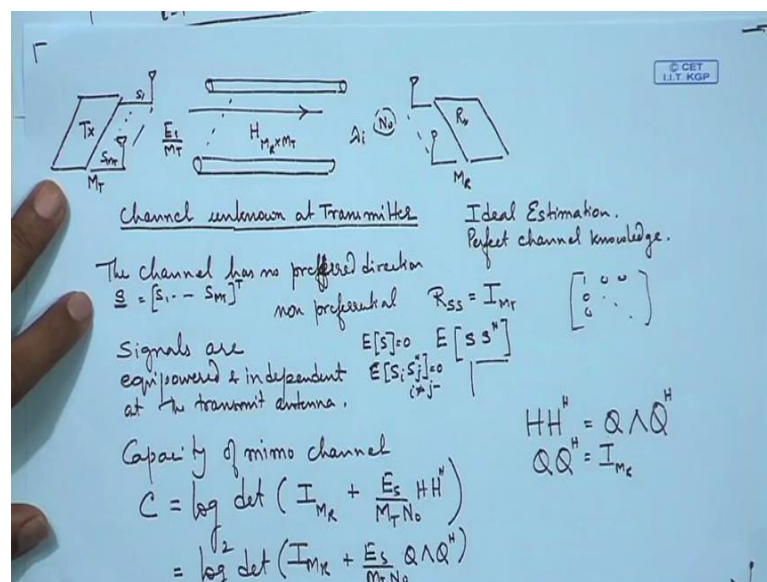 © CET
I.I.T. KGP
Tx
S1
SMT
MT
Es/MT
H MR×MT
λi
N0
Rx
MR
Channel unknown at Transmitter
Ideal Estimation.
Perfect channel knowledge.
The channel has no preffered direction
s = [s1, -- SMT]^T
non preferential
RSS = IMT
[1 0 0
0
0]
Signals are
equipowered & independent
at the transmit antenna.
E[S]=0
E[S S^H]
E[Si Sj^*]=0
i≠j
Capacity of mimo channel
HH^H = QΛQ^H
QQ^H = IMR
C = log2 det (IMR + Es/MTN0 HH^H)
= log2 det (IMR + Es/MTN0 QΛQ^H)